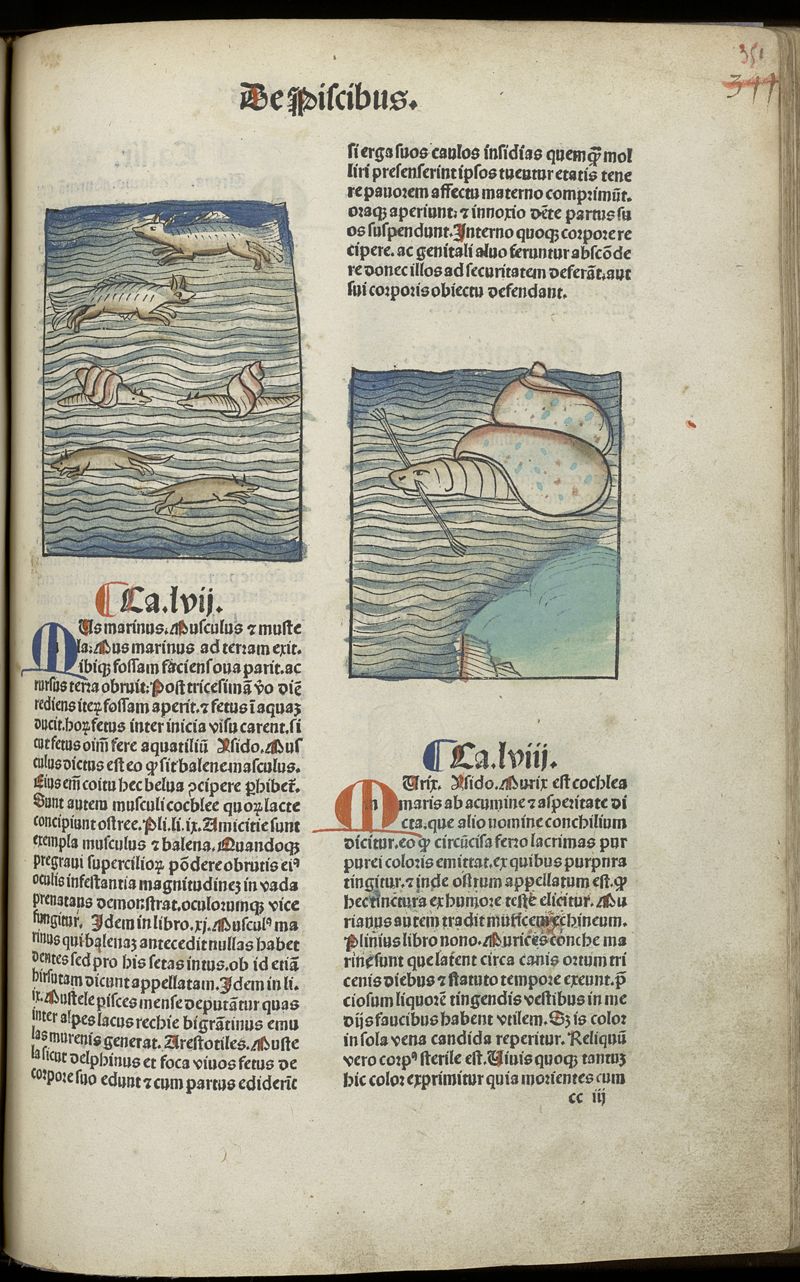 De Piscibus.
351
311
Ca. lvij.
MUs marinus. Musculus ⁊ muste
la. Mus marinus ad terram exit.
ibiqꝫ fossam faciens oua parit. ac
rursus terra obruit. Post tricesimā v̄o diē
rediens iteꝝ fossam aperit. ⁊ fetus ī aquaꝫ
ducit. hoꝝ fetus inter inicia visu carent. si
cut fetus oīm fere aquatiliū Isido. Mus
culus dictus est eo ꝙ sit balene masculus.
Eius em̄ coitu hec belua ↄcipere ꝑhibet̄.
Sunt autem musculi cochlee quoꝝ lacte
concipiunt ostree. Pli. li. ix. Amicitie sunt
exempla musculus ⁊ balena. Quandoqꝫ
pregraui supercilioꝝ pōdere obrutis eiꝰ
oculis infestantia magnitudineꝫ in vada
prenatans demonstrat. oculorumqꝫ vice
fungitur. Idem in libro. xj. Musculꝰ ma
rinus qui balenaꝫ antecedit nullas habet
dentes sed pro his setas intus. ob id etiā
hirsutam dicunt appellatam. Idem in li.
ix. Mustele pisces mense deputātur quas
inter alpes lacus rechie bigrātinus emu
las murenis generat. Arestotiles. Muste
la sicut delphinus et foca viuos fetus de
corpore suo edunt ⁊ cum partus ediderīt
si erga suos caulos insidias quemꝙ̄ mol
liri presenserint ipsos tuentur etatis tene
re pauorem affectu materno comprimūt.
oraqꝫ aperiunt. ⁊ innoxio dēte partus su
os suspendunt. Interno quoqꝫ corpore re
cipere. ac genitali aluo feruntur abscōde
re donec illos ad securitatem deferāt. aut
sui corporis obiectu defendant.
Ca. lviij.
MUrix. Isido. Murix est cochlea
maris ab acumine ⁊ asperitate di
cta. que alio nomine conchilium
dicitur. eo ꝙ circūcisa ferro lacrimas pur
purei coloris emittat. ex quibus purpura
tingitur. ⁊ inde ostrum appellatum est. ꝙ
hec tinctura ex humore teste elicitur. Au
rianus autem tradit muricem echineum.
Plinius libro nono. Murices conche ma
rine sunt que latent circa canis ortum tri
cenis diebus ⁊ statuto tempore exeunt. p̄
ciosum liquorē tingendis vestibus in me
dijs faucibus habent vtilem. Sꝫ is color
in sola vena candida reperitur. Reliquū
vero corpꝰ sterile est. Uiuis quoqꝫ tantuꝫ
hic color exprimitur quia morientes cum
cc iij